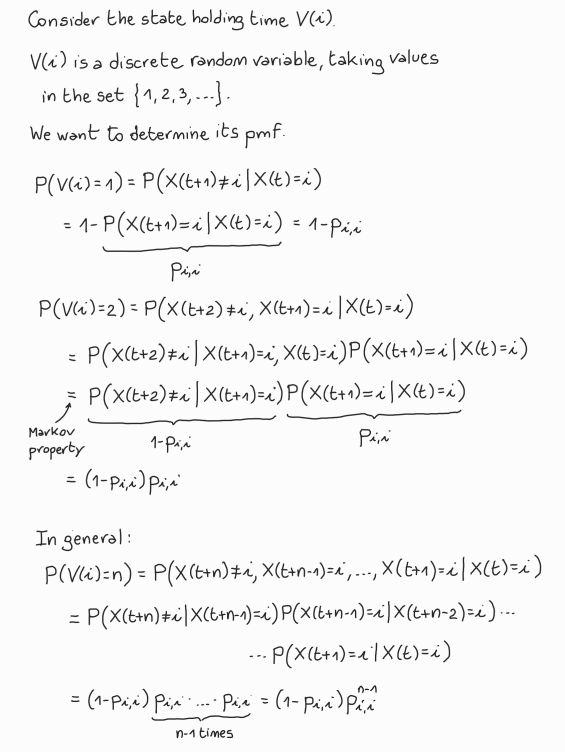 Consider the state holding time V(i).
V(i) is a discrete random variable, taking values
in the set {1, 2, 3, ...}.
We want to determine its pmf.
P(V(i)=1) = P(X(t+1)≠i | X(t)=i)
= 1-P(X(t+1)=i | X(t)=i) = 1-p_{i,i}
p_{i,i}
P(V(i)=2) = P(X(t+2)≠i, X(t+1)=i | X(t)=i)
= P(X(t+2)≠i | X(t+1)=i, X(t)=i)P(X(t+1)=i | X(t)=i)
= P(X(t+2)≠i | X(t+1)=i)P(X(t+1)=i | X(t)=i)
Markov property
1-p_{i,i} p_{i,i}
= (1-p_{i,i})p_{i,i}
In general:
P(V(i)=n) = P(X(t+n)≠i, X(t+n-1)=i, ..., X(t+1)=i | X(t)=i)
= P(X(t+n)≠i | X(t+n-1)=i)P(X(t+n-1)=i | X(t+n-2)=i) ...
... P(X(t+1)=i | X(t)=i)
= (1-p_{i,i}) p_{i,i} · ... · p_{i,i} = (1-p_{i,i}) p_{i,i}^{n-1}
n-1 times